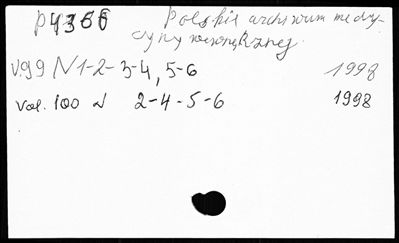 P4366 Polskie archiwum medy-
cyny wewnętrznej.
V.99 N 1-2-3-4, 5-6 1998
Vol. 100 N 2-4-5-6 1998